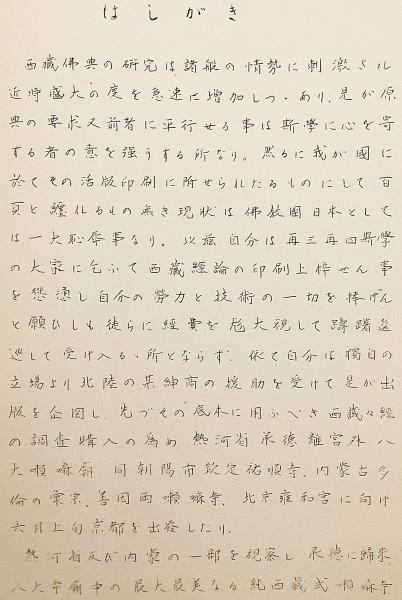 はしがき
西藏佛典の研究は諸般の情勢に刺激さル
近時盛大の度を急速に増加しつゝあり、是が原
典の要求又前者に平行せる事は斯學に心を寄
する者の意を强うする所なり。然るに我が國に
於てその活版印刷に附せられたるものにして百
頁と纒れるもの無き現狀は佛敎國日本として
は一大恥辱事なり。以玆自分は再三再四斯學
の大家に乞ふて西藏經論の印刷上梓せん事
を慫慂し自分の勞力と技術の一切を捧げん
と願ひしも徒らに經費を尨大視して躊躇逡
巡して受け入るゝ所とならず、依て自分は獨自の
立場より北陸の某紳商の援助を受けて是が出
版を企図し、先づその底本に用ふべき西藏々經
の調査購入の為め 熱河省承德離宮外八
大喇嘛廟、同朝陽市欽定祐順寺、内蒙古多
倫の彙宗、善因両喇嘛寺、北京雍和宮に向け
六月上旬京都を出發したり。
熱河省及び内蒙の一部を視察し 承德に歸來
八大寺廟中の最大最美なる純西藏式喇嘛寺